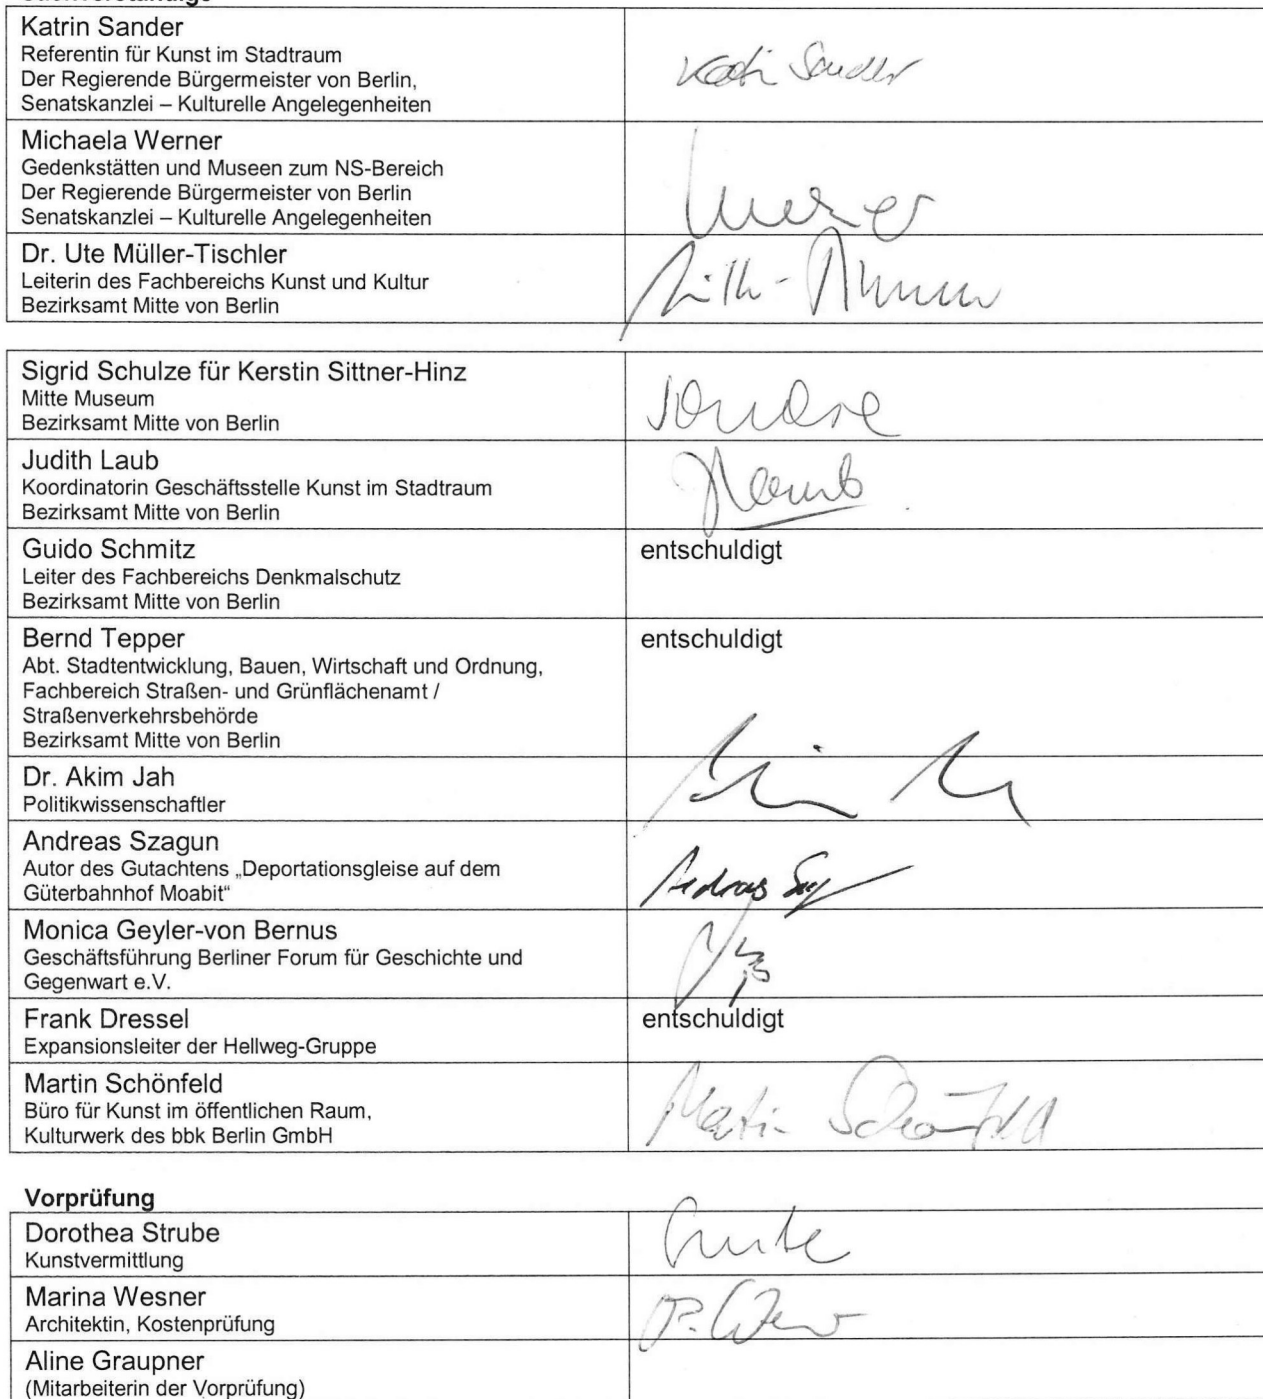 Katrin Sander
Referentin für Kunst im Stadtraum
Der Regierende Bürgermeister von Berlin,
Senatskanzlei – Kulturelle Angelegenheiten
Katrin Sander
Michaela Werner
Gedenkstätten und Museen zum NS-Bereich
Der Regierende Bürgermeister von Berlin
Senatskanzlei – Kulturelle Angelegenheiten
Werner
Dr. Ute Müller-Tischler
Leiterin des Fachbereichs Kunst und Kultur
Bezirksamt Mitte von Berlin
Sigrid Schulze für Kerstin Sittner-Hinz
Mitte Museum
Bezirksamt Mitte von Berlin
Judith Laub
Koordinatorin Geschäftsstelle Kunst im Stadtraum
Bezirksamt Mitte von Berlin
Guido Schmitz
Leiter des Fachbereichs Denkmalschutz
Bezirksamt Mitte von Berlin
entschuldigt
Bernd Tepper
Abt. Stadtentwicklung, Bauen, Wirtschaft und Ordnung,
Fachbereich Straßen- und Grünflächenamt /
Straßenverkehrsbehörde
Bezirksamt Mitte von Berlin
entschuldigt
Dr. Akim Jah
Politikwissenschaftler
Andreas Szagun
Autor des Gutachtens „Deportationsgleise auf dem
Güterbahnhof Moabit“
Andreas
Monica Geyler-von Bernus
Geschäftsführung Berliner Forum für Geschichte und
Gegenwart e.V.
Frank Dressel
Expansionsleiter der Hellweg-Gruppe
entschuldigt
Martin Schönfeld
Büro für Kunst im öffentlichen Raum,
Kulturwerk des bbk Berlin GmbH
Martin Schönfeld
Vorprüfung
Dorothea Strube
Kunstvermittlung
Strube
Marina Wesner
Architektin, Kostenprüfung
Aline Graupner
(Mitarbeiterin der Vorprüfung)